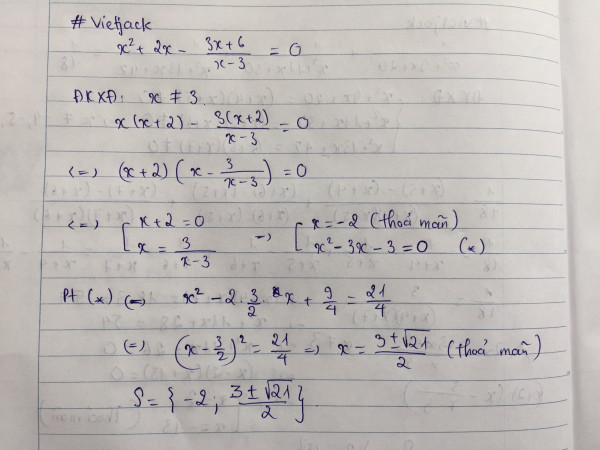 # Vietjack
x² + 2x - (3x+6)/(x-3) = 0
ĐKXĐ: x ≠ 3.
x(x+2) - 3(x+2)/(x-3) = 0
<=> (x+2)(x - 3/(x-3)) = 0
<=> [x+2 = 0; x = 3/(x-3) => [x = -2 (thoả mãn); x² - 3x - 3 = 0 (*)
Pt (*) <=> x² - 2.3/2.x + 9/4 = 21/4
<=> (x - 3/2)² = 21/4 => x = (3±√21)/2 (thoả mãn)
S = {-2; (3±√21)/2}.